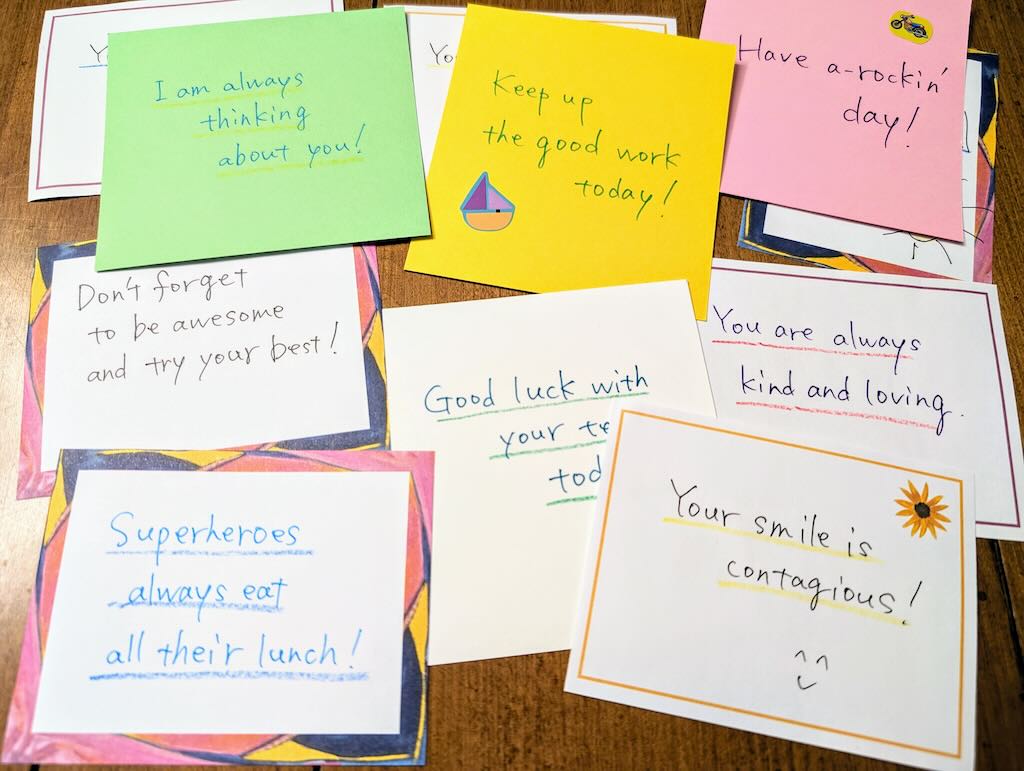 I am always
thinking
about you!
Keep up
the good work
today!
Have a-rockin'
day!
Don't forget
to be awesome
and try your best!
Good luck with
your
You are always
kind and loving.
Superheroes
always eat
all their lunch!
Your smile is
contagious!